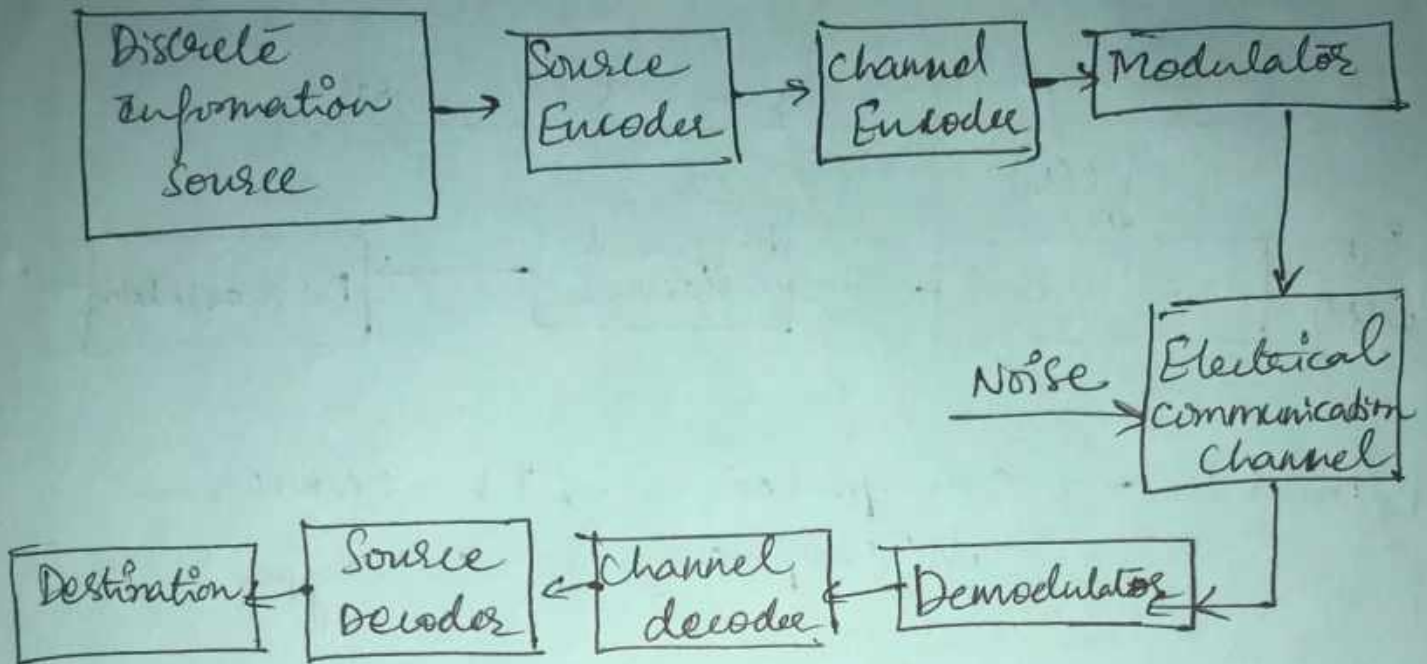 Discrete
information
source
Source
Encoder
Channel
Encoder
Modulator
Noise
Electrical
communication
Channel
Demodulator
Channel
decoder
Source
Decoder
Destination